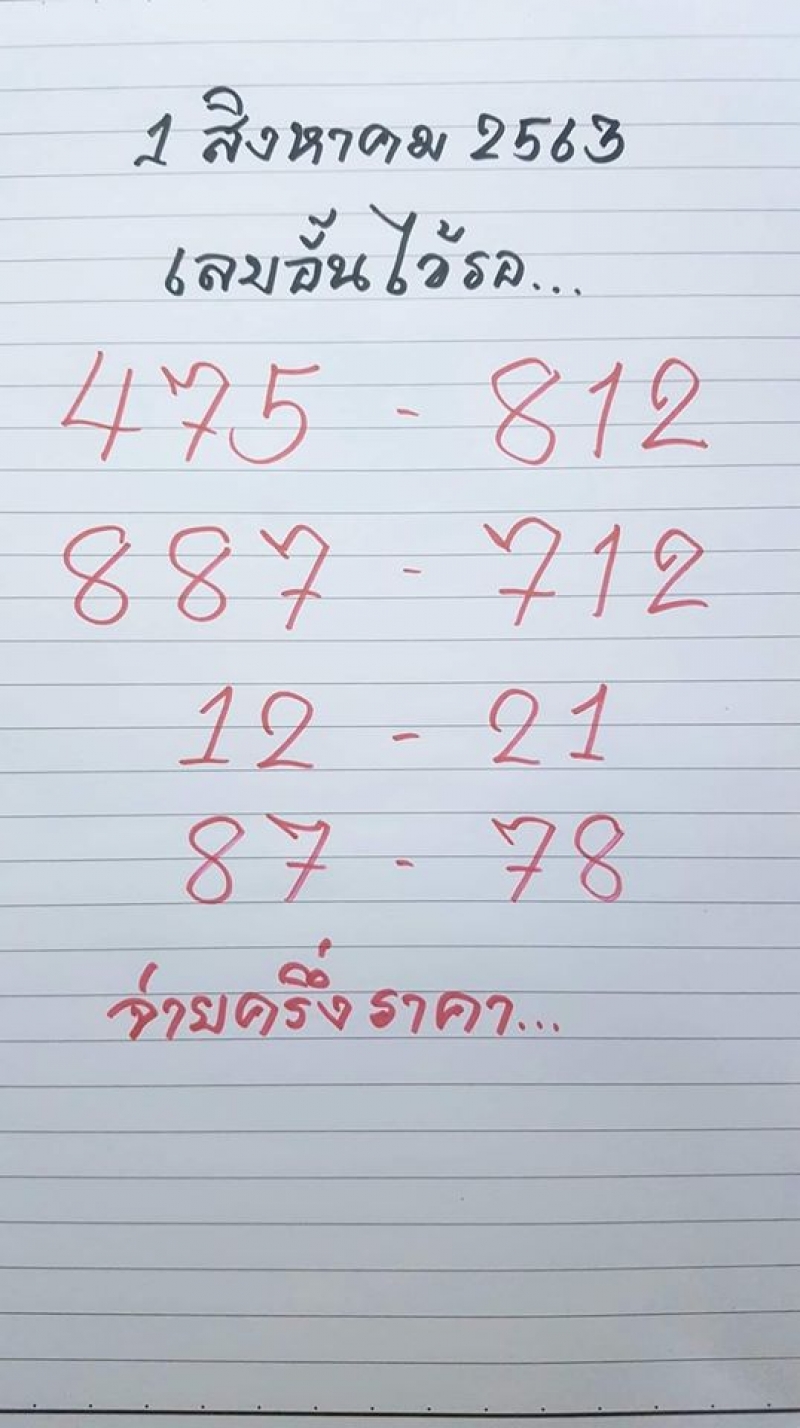 1 สิงหาคม 2563
เลขอั้นไว้รอ...
475 - 812
887 - 712
12 - 21
87 - 78
จ่ายครึ่งราคา...